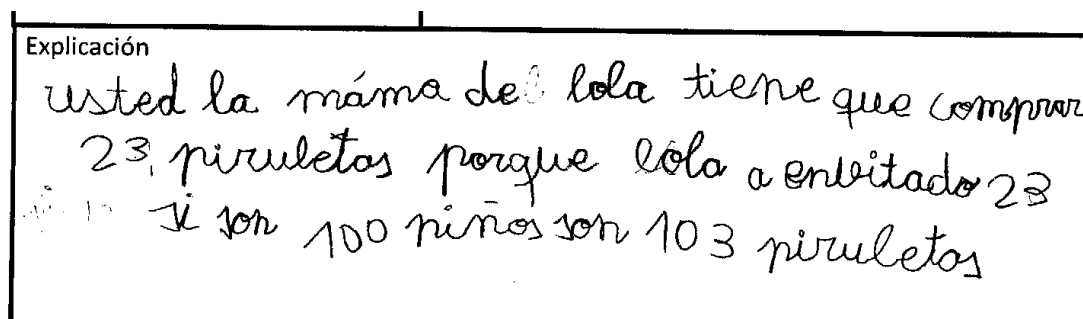 Explicación
usted la máma de lola tiene que comprar
23 piruletas porque lola a enbitado 23
si son 100 niños son 103 piruletas